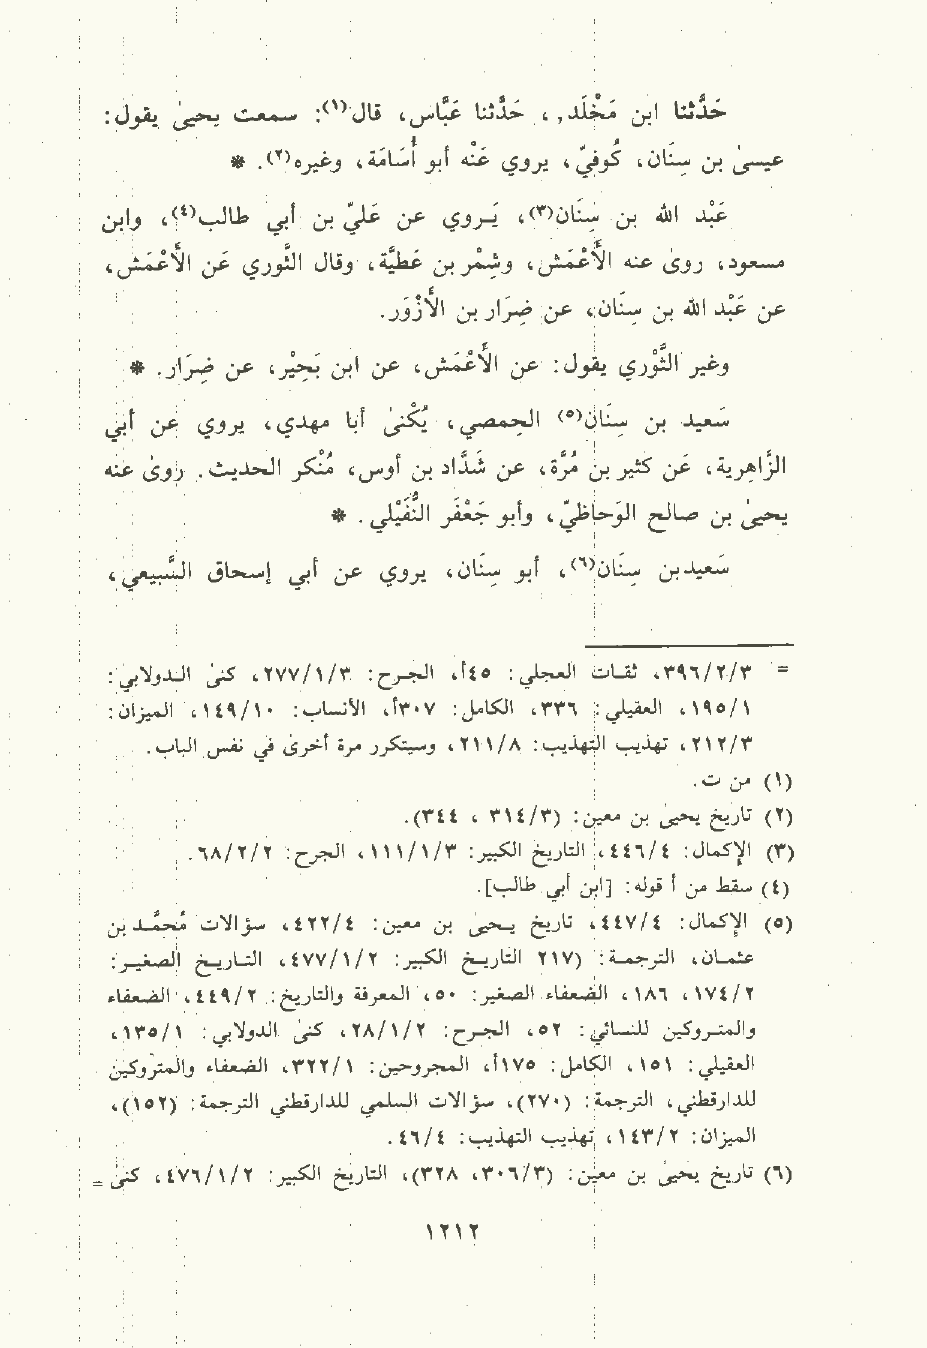 حَدَّثنا ابن مَخْلَد، حَدَّثنا عَبَّاس، قال(١): سمعت يحيىٰ يقول:
عيسىٰ بن سِنَان، كُوفيّ، يروي عَنْه أبو أُسَامَة، وغيره(٢). *
عَبْد الله بن سِنَان(٣)، يَـروي عن عَليّ بن أبي طالب(٤)، وابن
مسعود، روىٰ عنه الأَعْمَش، وشِمْر بن عَطيَّة، وقال الثَّوري عَن الأَعْمَش،
عن عَبْد الله بن سِنَان، عن ضِرَار بن الأَزْوَر.
وغير الثَّوْري يقول: عن الأَعْمَش، عن ابن بَحِيْر، عن ضِرَار. *
سَعيد بن سِنَان(٥) الحِمصي، يُكْنىٰ أبا مهدي، يروي عن أبي
الزَّاهِرية، عَن كثير بن مُرَّة، عن شَدَّاد بن أوس، مُنْكر الحديث. روىٰ عنه
يحيىٰ بن صالح الوَحَاظيّ، وأبو جَعْفَر النُّفَيْلي. *
سَعيدبن سِنَان(٦)، أبو سِنَان، يروي عن أبي إسحاق السَّبيعي،
= ٣٩٦/٢/٣، ثقـات العجلي: ٤٥أ، الجـرح: ٢٧٧/١/٣، كنىٰ الـدولابي:
١٩٥/١، العقيلي: ٣٣٦، الكامل: ٣٠٧أ، الأنساب: ١٤٩/١٠، الميزان:
٢١٢/٣، تهذيب التهذيب: ٢١١/٨، وسيتكرر مرة أخرىٰ في نفس الباب.
(١) من ت.
(٢) تاريخ يحيىٰ بن معين: (٣١٤/٣ ، ٣٤٤).
(٣) الإكمال: ٤٤٦/٤، التاريخ الكبير: ١١١/١/٣، الجرح: ٦٨/٢/٢.
(٤) سقط من أ قوله: [ابن أبي طالب].
(٥) الإكمال: ٤٤٧/٤، تاريخ يحيىٰ بن معين: ٤٢٢/٤، سؤالات مُحمَّـد بن
عثمـان، الترجمـة: (٢١٧ التاريـخ الكبير: ٤٧٧/١/٢، التـاريـخ الصغيـر:
١٧٤/٢، ١٨٦، الضعفاء الصغير: ٥٠، المعرفة والتاريخ: ٤٤٩/٢، الضعفاء
والمتـروكين للنسائي: ٥٢، الجـرح: ٢٨/١/٢، كنىٰ الدولابي: ١٣٥/١،
العقيلي: ١٥١، الكامل: ١٧٥أ، المجروحين: ٣٢٢/١، الضعفاء والمتروكين
للدارقطني، الترجمة: (٢٧٠)، سؤالات السلمي للدارقطني الترجمة: (١٥٢)،
الميزان: ١٤٣/٢، تهذيب التهذيب: ٤٦/٤.
(٦) تاريخ يحيىٰ بن معين: (٣٠٦/٣، ٣٢٨)، التاريخ الكبير: ٤٧٦/١/٢، كنىٰ =
١٢١٢